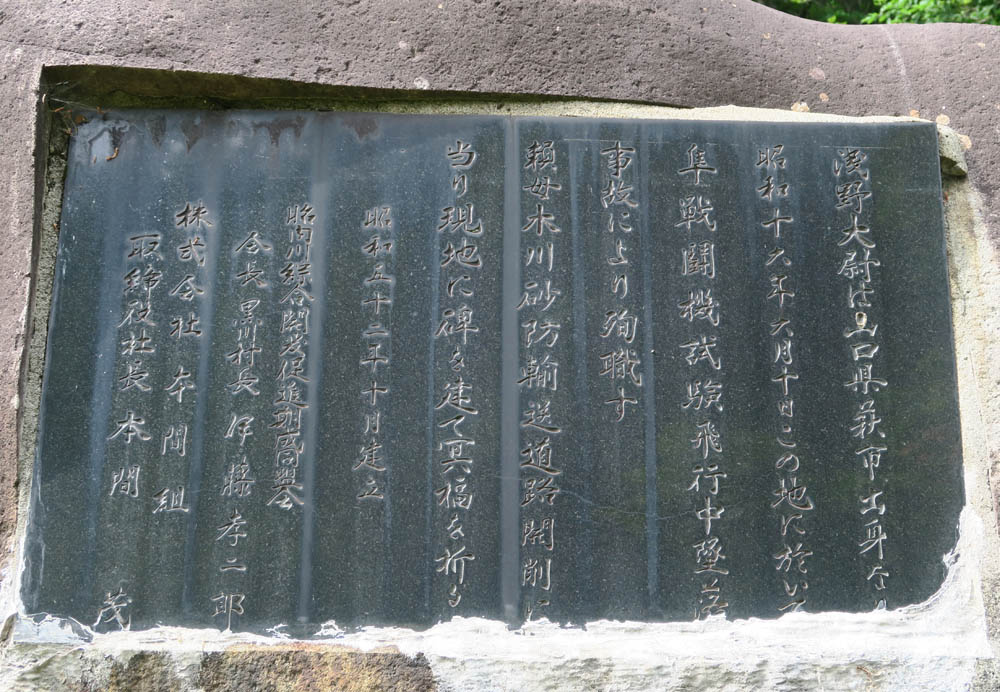 浅野大尉は山口県萩市出身なり
昭和十六年六月十日この地に於いて
隼戦闘機試験飛行中墜落
事故により殉職す
頼母木川砂防輸送道路開削に
当り現地に碑を建て冥福を祈る
昭和五十二年十月建立
胎内川綜合開発促進期成同盟会
会長黒川村長伊藤孝二郎
株式会社本間組
取締役社長本間茂